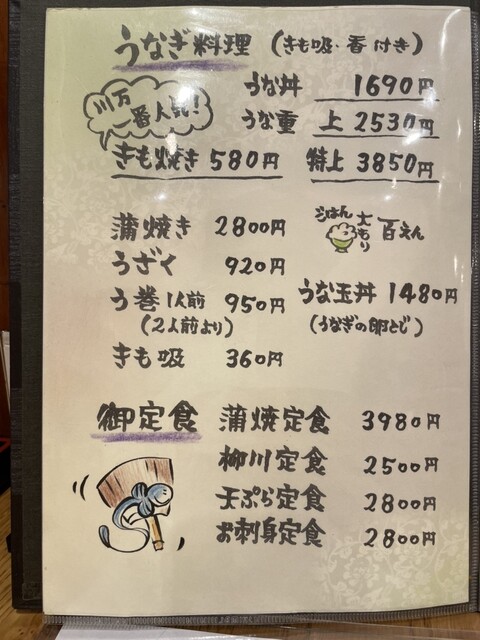 うなぎ料理 (きも吸・香付き)
川万
一番人気!
うな丼 1690円
うな重 上 2530円
きも焼き 580円 特上 3850円
蒲焼き 2800円
ごはん大もり 百えん
うざく 920円
う巻 1人前 950円 うな玉丼 1480円
(2人前より) (うなぎの卵とじ)
きも吸 360円
御定食 蒲焼定食 3980円
柳川定食 2500円
天ぷら定食 2800円
お刺身定食 2800円